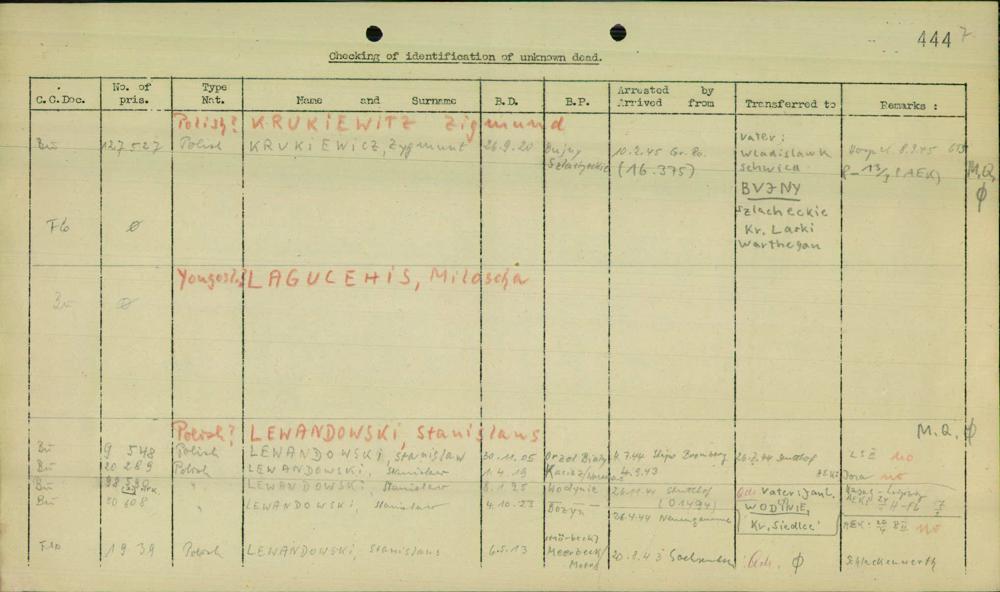 444 7
Checking of identification of unknown dead.
C.C.Doc. No. of pris. Type Nat. Name and Surname B.D. B.P. Arrested by Arrived from Transferred to Remarks :
Polish? KRUKIEWITZ Zigmund
Bu 127527 Polish KRUKIEWICZ, Zygmunt 26.9.20 Bujny Szlacheckie 10.2.45 Gr. Ro. (16.375)
Vater:
Wladislawk
BUJNY
Szlacheckie
Kr. Laski
Warthegau
8.3.45
M.Q. Ø
Flo Ø
Yougosl.? LAGUCEHIS, Miloscha
Bu Ø
Polish? LEWANDOWSKI, Stanislaus
M.Q. Ø
Bu 9 548 Polish LEWANDOWSKI, Stanislaw 30.11.05 4.7.44 Stapo Bromberg 20.7.44 Stutthof no
Bu 20 289 Polish LEWANDOWSKI, Stanislaw 1.4.19 4.9.43 Dora no
Bu 98 530 " LEWANDOWSKI, Stanislaw 8.1.25 Wodynie 26.11.44 Stutthof (01494) Vater: Jan.
WODINIE,
Kr. Siedlce
Bu 50 608 " LEWANDOWSKI, Stanislaw 4.10.23 26.4.44 Neuengamme no
Flo 1939 Polish LEWANDOWSKI, Stanislaus 6.5.13 Meerbeck/ Moers Ø Schlackenwerth